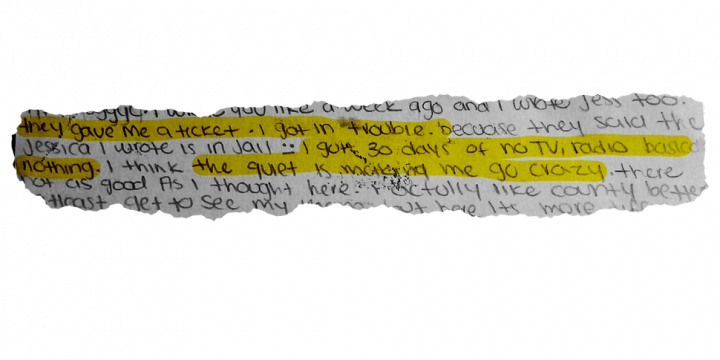 you like a week ago and I wrote Jess too.
they gave me a ticket. I got in trouble. because they said the
Jessica I wrote is in Jail :: I got 30 days of no TV, radio basic
nothing. I think the quiet is making me go crazy there
as good As I thought here. I actully like county better
get to see my here Its more